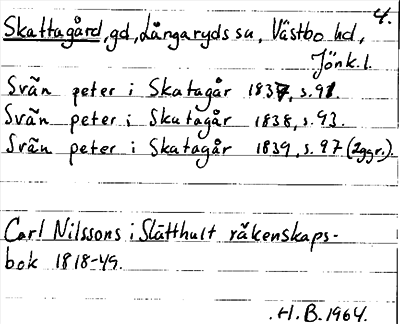 4.
Skattagård, gd, Långaryds sn, Västbo hd,
Jönk.l.
Svän peter i Skatagår 1837, s.91.
Svän peter i Skatagår 1838, s.93.
Svän peter i Skatagår 1839, s.97 (2ggr.).
Carl Nilssons i Slätthult räkenskaps-
bok 1818-49.
H.B. 1964.